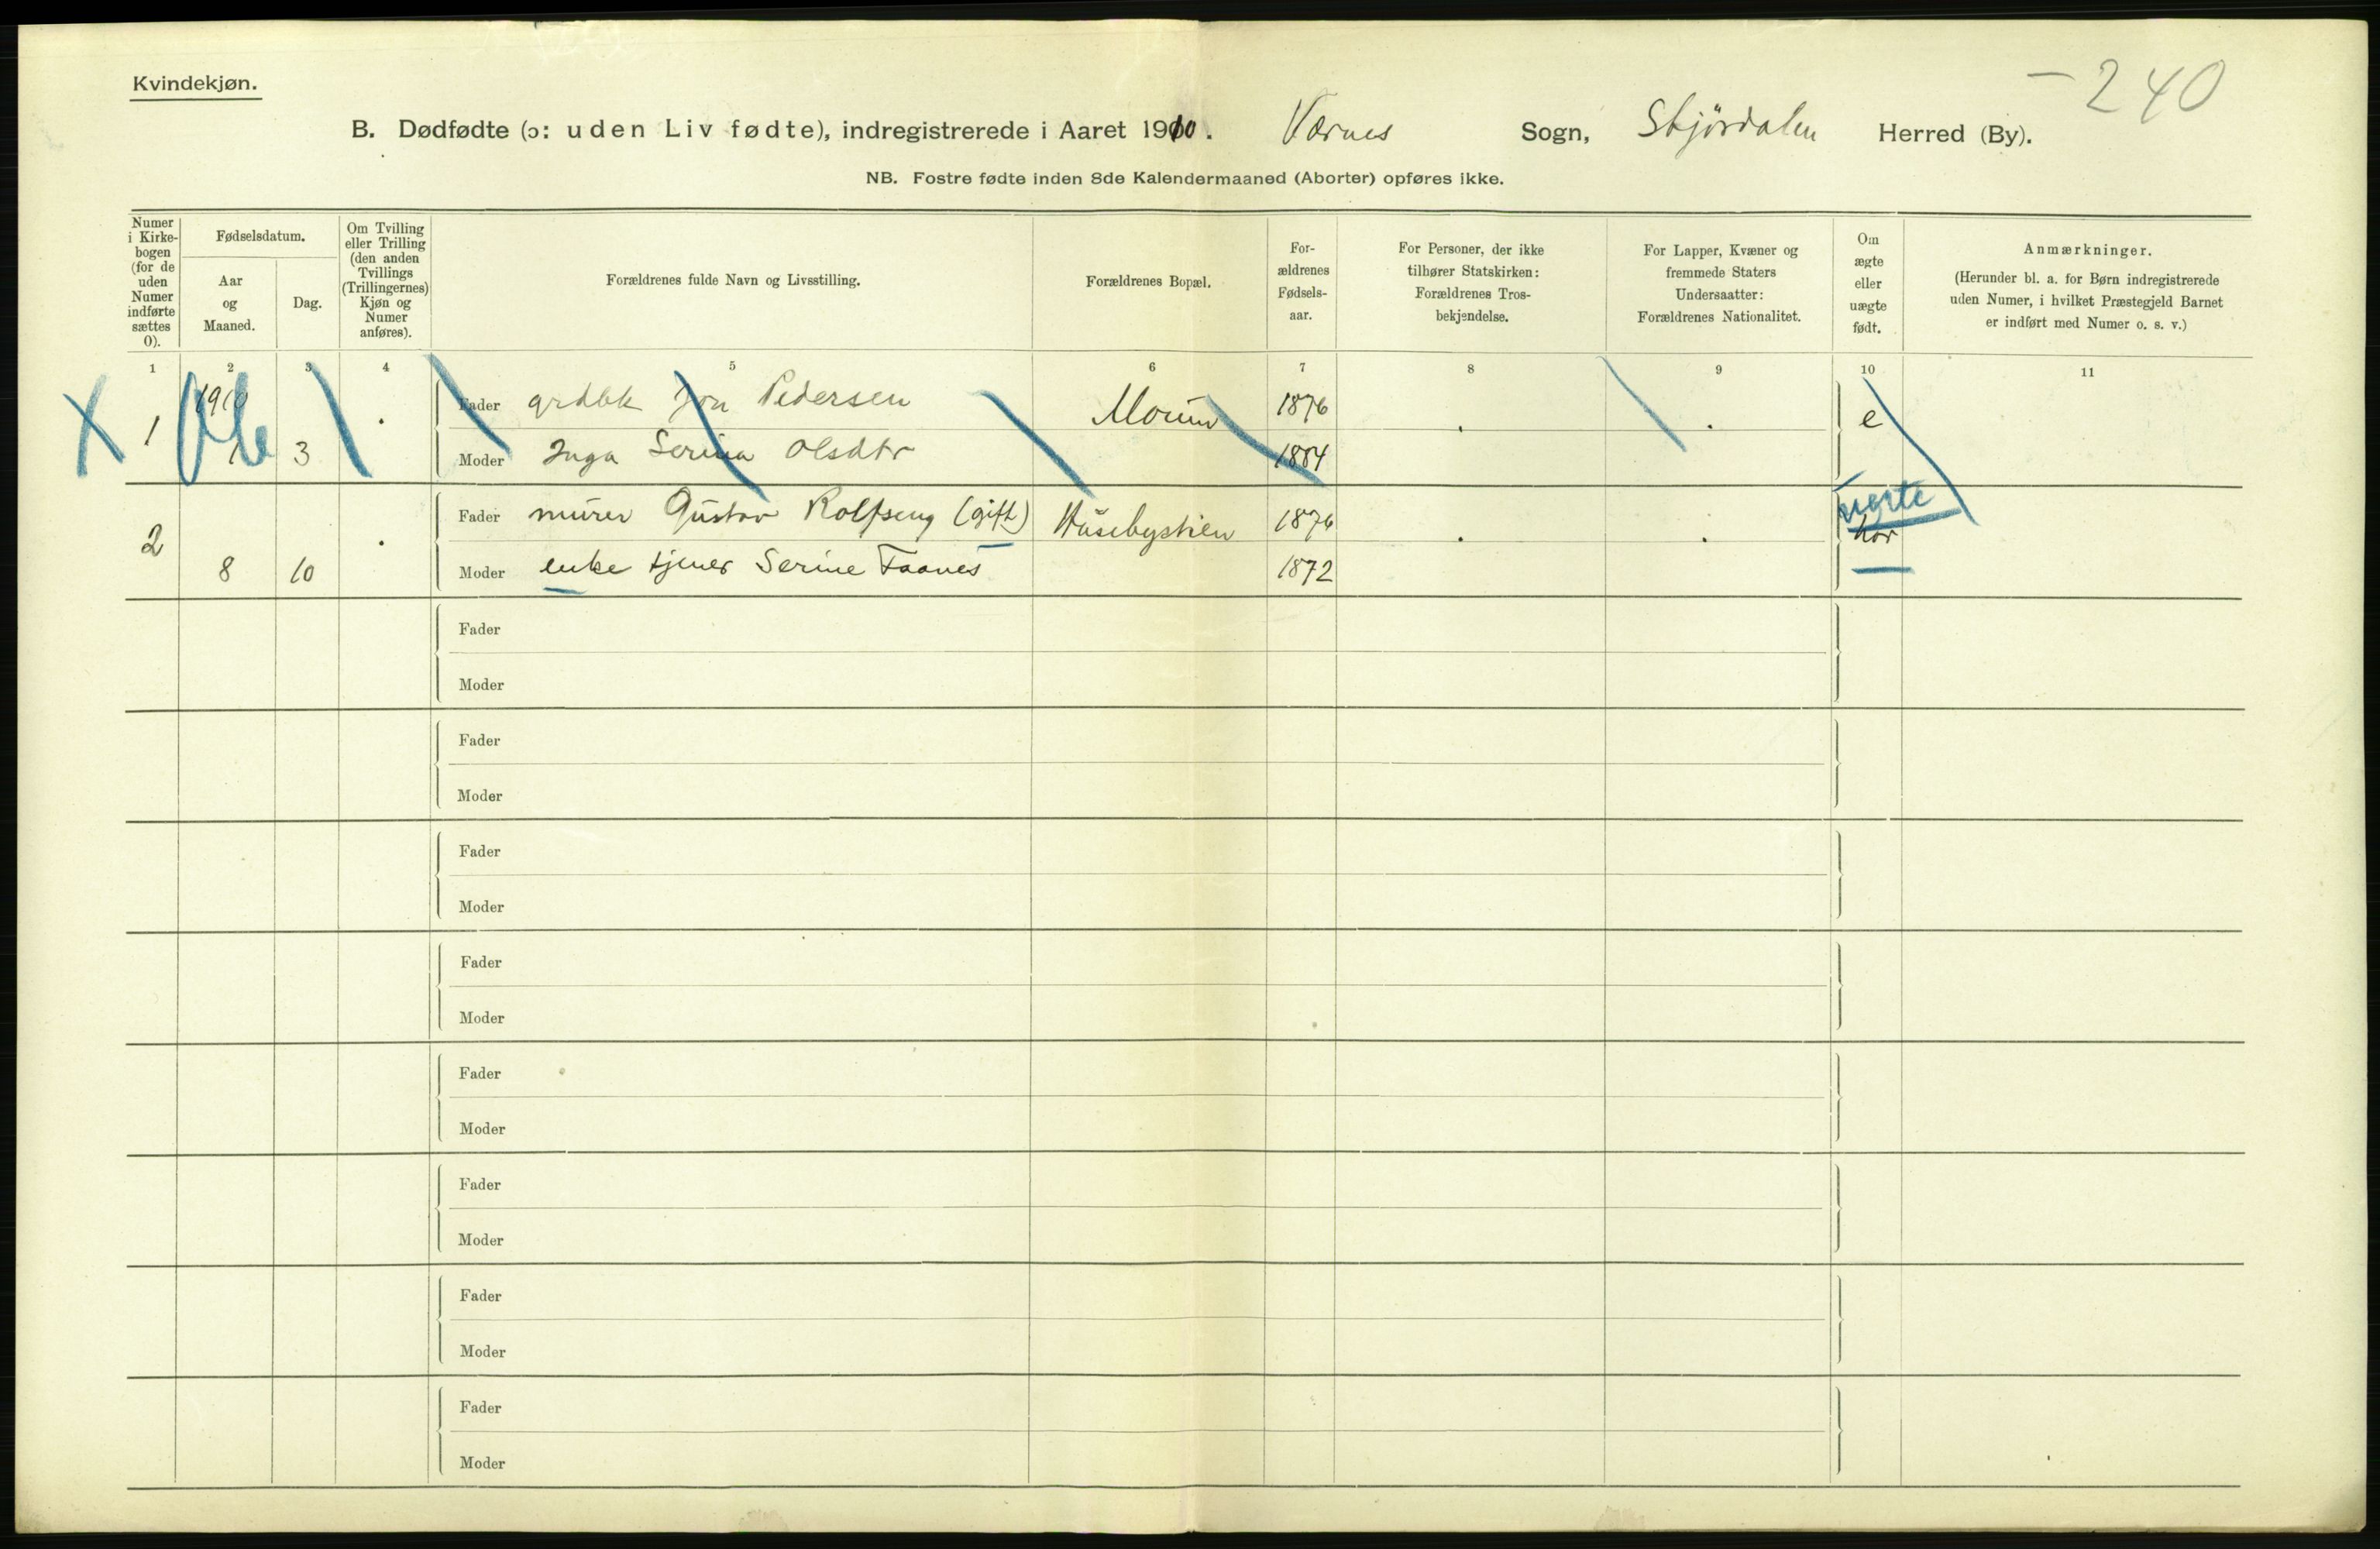 Kvindekjøn.
- 240
B. Dødfødte (ɔ: uden Liv fødte), indregistrerede i Aaret 1910. Værnes Sogn, Skjørdalen Herred (By).
NB. Fostre fødte inden 8de Kalendermaaned (Aborter) opføres ikke.
Numer i Kirke-bogen (for de uden Numer indførte sættes 0).
Fødselsdatum.
Aar og Maaned.
Dag.
Om Tvilling eller Trilling (den anden Tvillings (Trillingernes) Kjøn og Numer anføres).
Forældrenes fulde Navn og Livsstilling.
Forældrenes Bopæl.
For-ældrenes Fødsels-aar.
For Personer, der ikke tilhører Statskirken: Forældrenes Tros-bekjendelse.
For Lapper, Kvæner og fremmede Staters Undersaatter: Forældrenes Nationalitet.
Om ægte eller uægte født.
Anmærkninger.
(Herunder bl. a. for Børn indregistrerede uden Numer, i hvilket Præstegjeld Barnet er indført med Numer o. s. v.)
1 2 3 4 5 6 7 8 9 10 11
1 1910 3 . Fader grdbk Jon Pedersen 1876 . . e
Moder Inga Serina Olsdtr 1884
uegte
2 . Fader murer Gustav Rolfseng (gift) Husebystien 1876 . . hor
8 10 Moder enke tjener Serine Faanes 1872
Fader
Moder
Fader
Moder
Fader
Moder
Fader
Moder
Fader
Moder
Fader
Moder
Fader
Moder
Fader
Moder